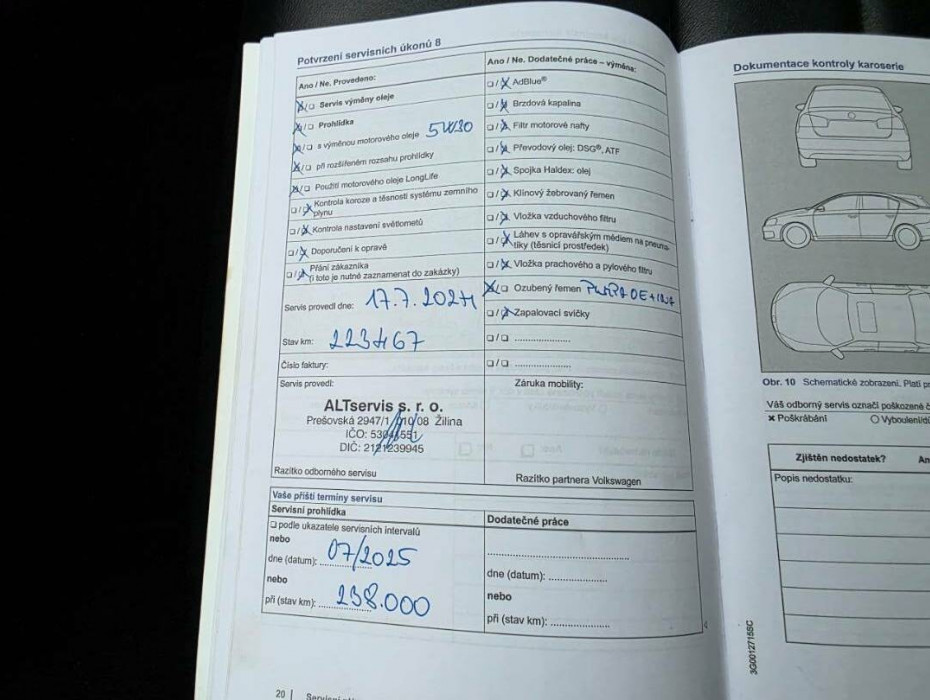 Potvrzení servisních úkonů 8
Ano / Ne. Provedeno:
Servis výměny oleje
Prohlídka
s výměnou motorového oleje 5W30
při rozšířeném rozsahu prohlídky
Použití motorového oleje LongLife
Kontrola koroze a těsnosti systému zemního
plynu
Kontrola nastavení světlometů
Doporučení k opravě
Přání zákazníka
(i toto je nutné zaznamenat do zakázky)
Servis provedl dne: 17.7.2024
Stav km: 223467
Číslo faktury:
Servis provedl:
ALTservis s. r. o.
Prešovská 2947/1 010/08 Žilina
IČO:
DIČ: 2121239945
Razítko odborného servisu
Ano / Ne. Dodatečné práce – výměna:
AdBlue®
Brzdová kapalina
Filtr motorové nafty
Převodový olej: DSG®, ATF
Spojka Haldex: olej
Klínový žebrovaný řemen
Vložka vzduchového filtru
Láhev s opravářským médiem na pneuma-
tiky (těsnicí prostředek)
Vložka prachového a pylového filtru
Ozubený řemen
Zapalovací svíčky
Záruka mobility:
Razítko partnera Volkswagen
Vaše příští termíny servisu
Servisní prohlídka
podle ukazatele servisních intervalů
nebo
dne (datum): 07/2025
nebo
při (stav km): 238.000
Dodatečné práce
dne (datum):
nebo
při (stav km):
20
Dokumentace kontroly karoserie
Obr. 10 Schematické zobrazení. Platí
Váš odborný servis označí poškozené
× Poškrábání
Zjištěn nedostatek?
Popis nedostatku:
3G0012715SC